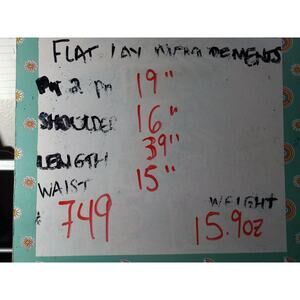 FLAT LAY MEASUREMENTS
Pit 2 Pit 19"
SHOULDER 16"
LENGTH 39"
WAIST 15"
WEIGHT
749 15.9oz